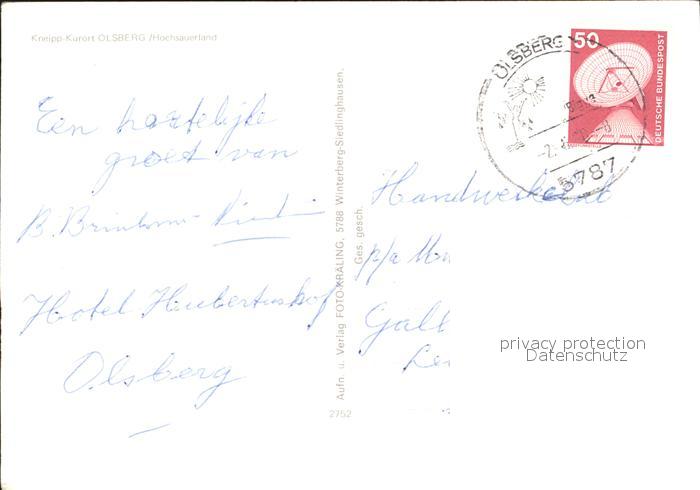 Kneipp-Kurort OLSBERG /Hochsauerland
Een hartelijke
groet van
B. Brinkman-
Hotel Hubertushof
Olsberg
Aufn. u. Verlag FOTO-KRÄLING, 5788 Winterberg-Siedlinghausen,
Ges. gesch.
2752
OLSBERG
5787
50
DEUTSCHE BUNDESPOST
p/a
Gall
privacy protection
Datenschutz